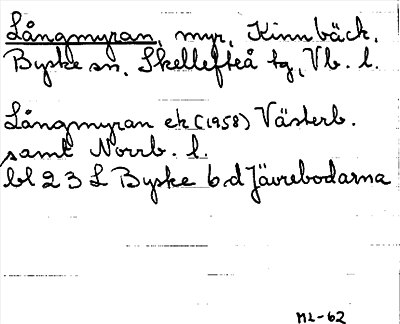 Långmyran, myr, Kinnbäck,
Byske sn, Skellefteå tg, Vb. l.
Långmyran ek (1958) Västerb.
samt Norrb. l.
bl 23 L Byske b d Jävrebodarna
ML-62